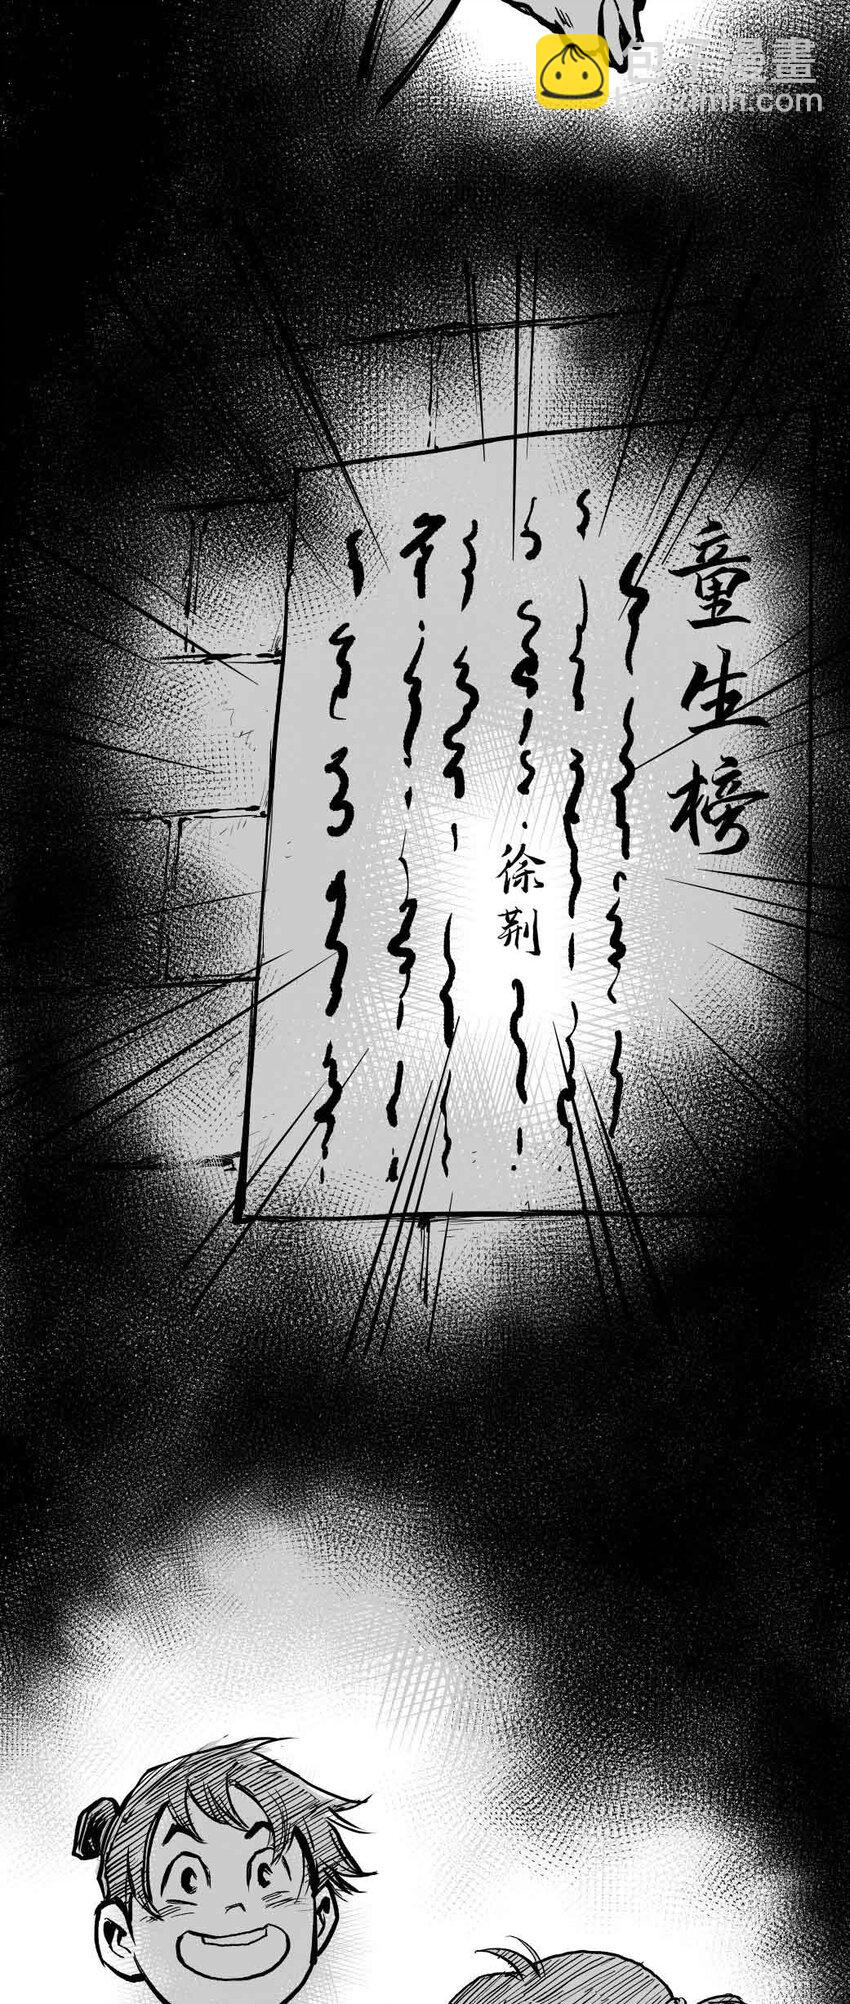 包子漫畫
baozimh.com
童生榜
徐荆